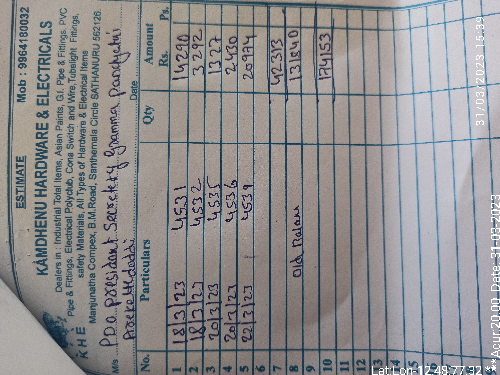 ESTIMATE
Mob : 9964180032
KAMDHENU HARDWARE & ELECTRICALS
Dealers in : Industrial Total Items, Asian Paints, G.I. Pipe & Fittings, PVC
Pipe & Fittings, Electrical Polyclub, Cona Switch and Wire, Tubelight Fitings,
safety Materials, All Types of Hardware & Electrical Items
Manjunatha Compex, B.M.Road, Santhemala Circle SATHANURU-562126.
KHE
M/s PDO President Secretery Gramma Panchyathi
Date
No. Particulars Qty Amount
Rs. Ps.
1 18/3/23 4531 14290
2 18/3/23 4532 3292
3 20/3/23 4535 1327
4 20/3/23 4536 2430
5 22/3/23 4539 20974
6
7 42313
8 Old Balanc 131840
9
10 174153
11
12
13
14
15
31/03/2023 15:39
Lat,Lon-12.48,77.32 ***Acur:20.00, Date:31-03-2023